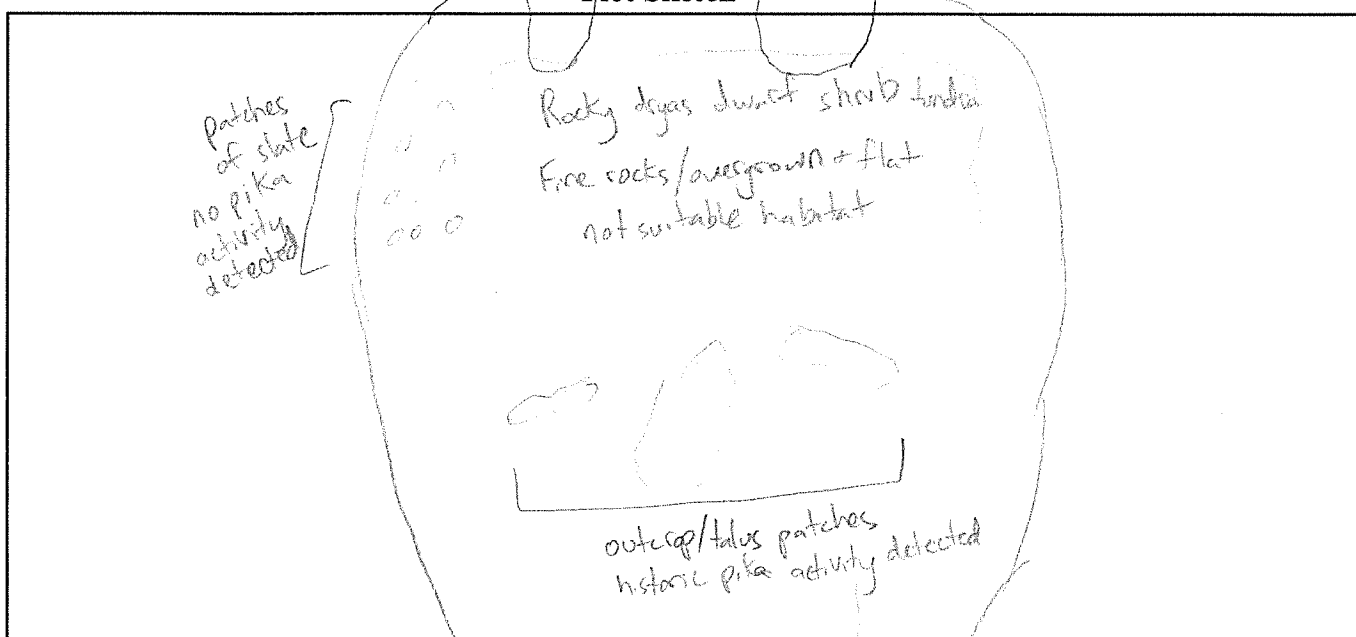 Plot Sketch
patches
of slate
no pika
activity
detected
Rocky dryas dwarf shrub tundra
Fine rocks/overgrown + flat
not suitable habitat
outcrop/talus patches
historic pika activity detected